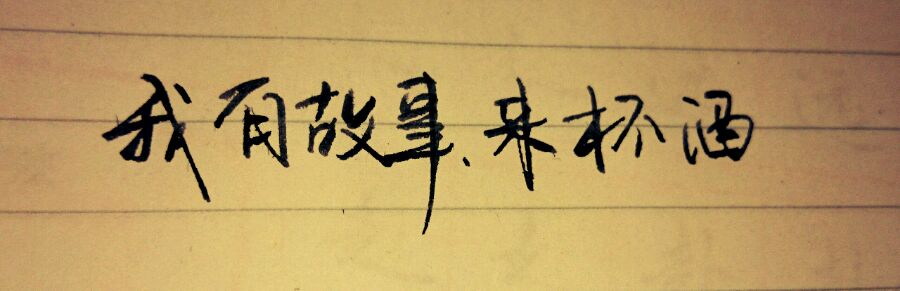 我有故事、来杯酒